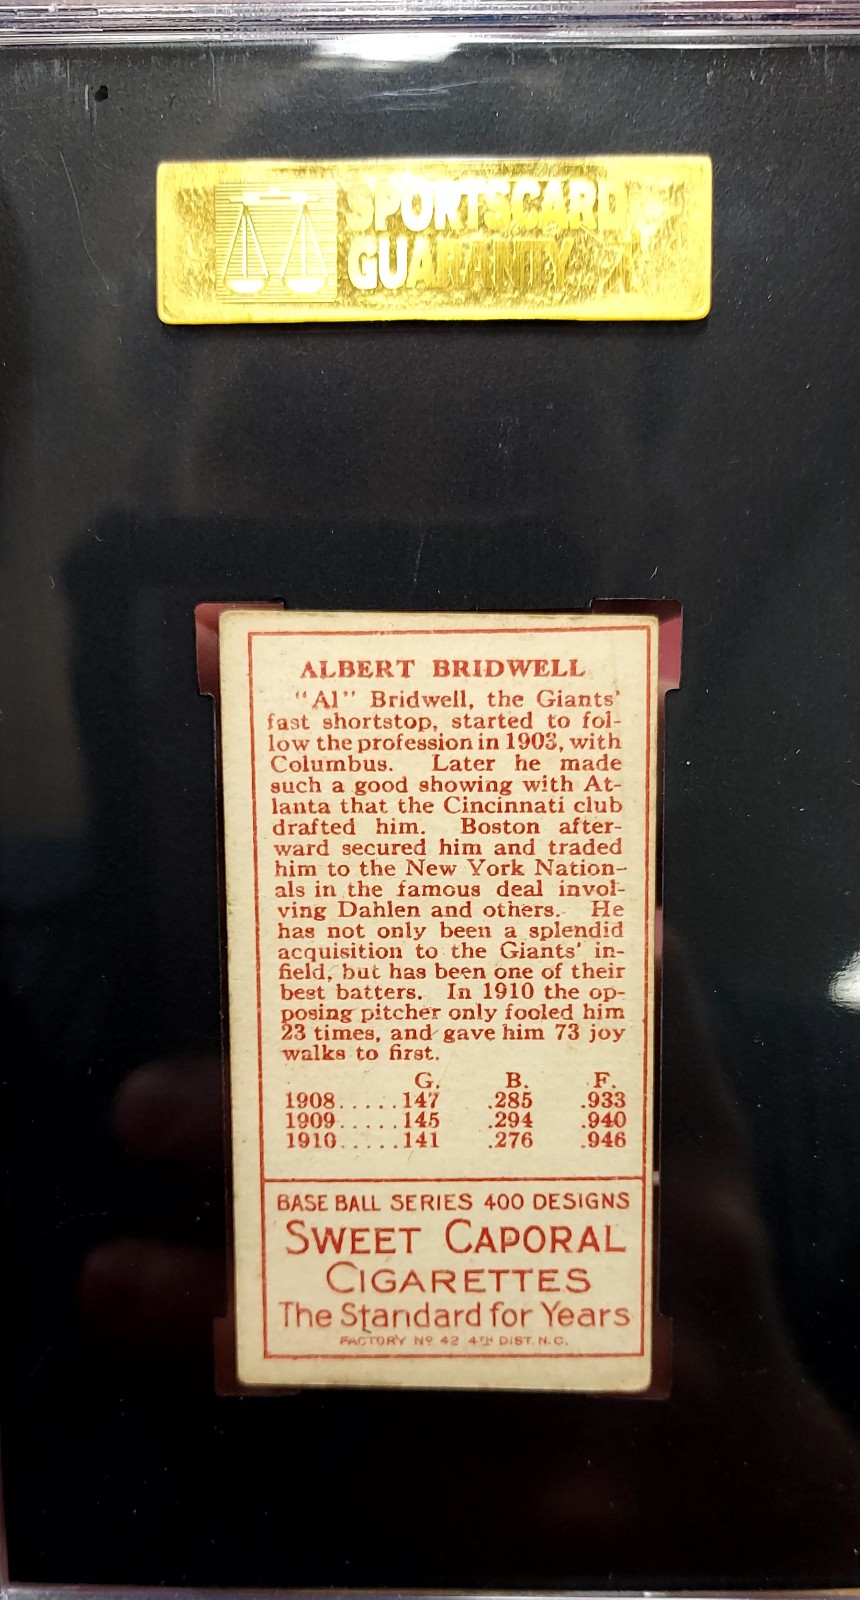 SPORTSCARD
GUARANTY
ALBERT BRIDWELL
"Al" Bridwell, the Giants'
fast shortstop, started to fol-
low the profession in 1903, with
Columbus. Later he made
such a good showing with At-
lanta that the Cincinnati club
drafted him. Boston after-
ward secured him and traded
him to the New York Nation-
als in the famous deal invol-
ving Dahlen and others. He
has not only been a splendid
acquisition to the Giants' in-
field, but has been one of their
best batters. In 1910 the op-
posing pitcher only fooled him
23 times, and gave him 73 joy
walks to first.
G. B. F.
1908.....147 .285 .933
1909.....145 .294 .940
1910.....141 .276 .946
BASE BALL SERIES 400 DESIGNS
SWEET CAPORAL
CIGARETTES
The Standard for Years
FACTORY Nº 42 4TH DIST. N.C.